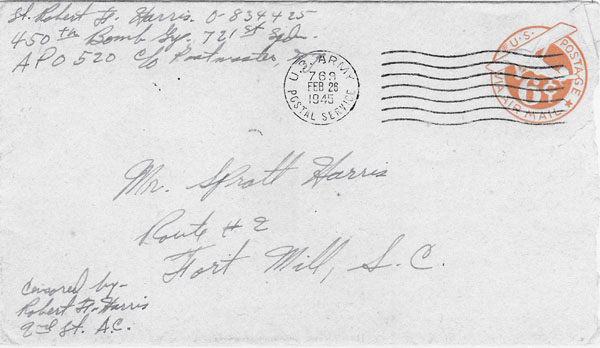 Lt. Robert F. Harris O-834425
450th Bomb Gp. 721st Sqdn.
APO 520 c/o Postmaster,
U.S. ARMY
769
FEB 28
1945
POSTAL SERVICE
U.S. POSTAGE
6¢
VIA AIR MAIL
Mr. Spratt Harris
Route # 2
Fort Mill, S.C.
Censored by-
Robert F. Harris
2nd Lt. A.C.